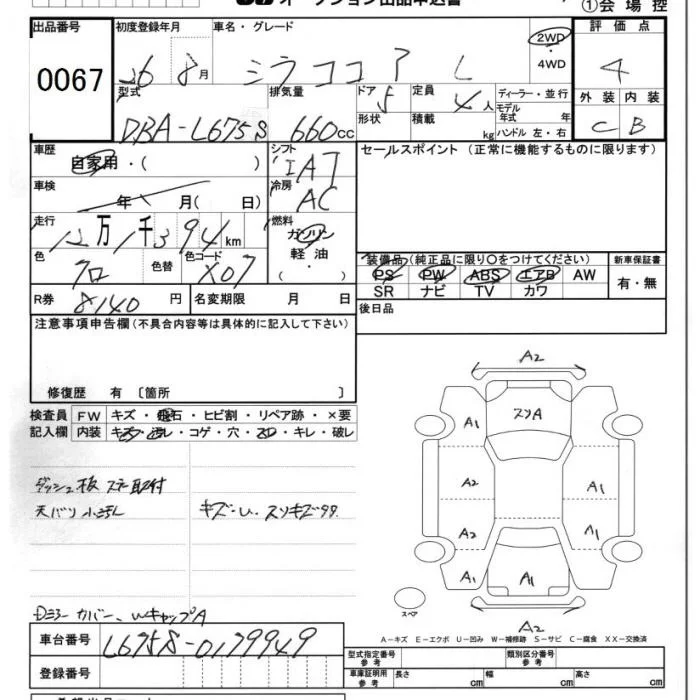 オークション出品申込書
①会場控
出品番号 初度登録年月 車名・グレード 評価点
0067 26 8月 ミラココア L 2WD・4WD 4
型式 排気量 ドア 定員 ディーラー・並行 外装 内装
DBA-L675S 660cc 5 4人 モデル年式 年 C B
形状 積載 kg ハンドル 左・右
車歴 シフト セールスポイント(正常に機能するものに限ります)
自家用・( ) IAT
車検 冷房
年 月( 日) AC
走行 燃料
12万1千394km ガソリン
色 色替 色コード 軽油
クロ X07 ・( )
装備品(純正品に限り○をつけてください) 新車保証書
PS PW ABS エアB AW 有・無
SR ナビ TV カワ
R券 8140円 名変期限 月 日 後日品
注意事項申告欄(不具合内容等は具体的に記入して下さい)
修復歴 有 〔箇所 〕
検査員 FW キズ・飛石・ヒビ割・リペア跡・×要
記入欄 内装 キズ・汚レ・コゲ・穴・スレ・キレ・破レ
ダッシュ板 ステー取付
天バリ 小汚レ キズ・U. スリキズ
Dミラーカバー、WキャップA
A2
スリA
A1
A2 A1
A2 A1
A1 A1
スペア
A2
A-キズ E-エクボ U-凹み W-補修跡 S-サビ C-腐食 XX-交換済
車台番号 L675S-0179949
型式指定番号 参考 類別区分番号 参考
登録番号
車庫証明用 参考 長さ cm 幅 cm 高さ cm